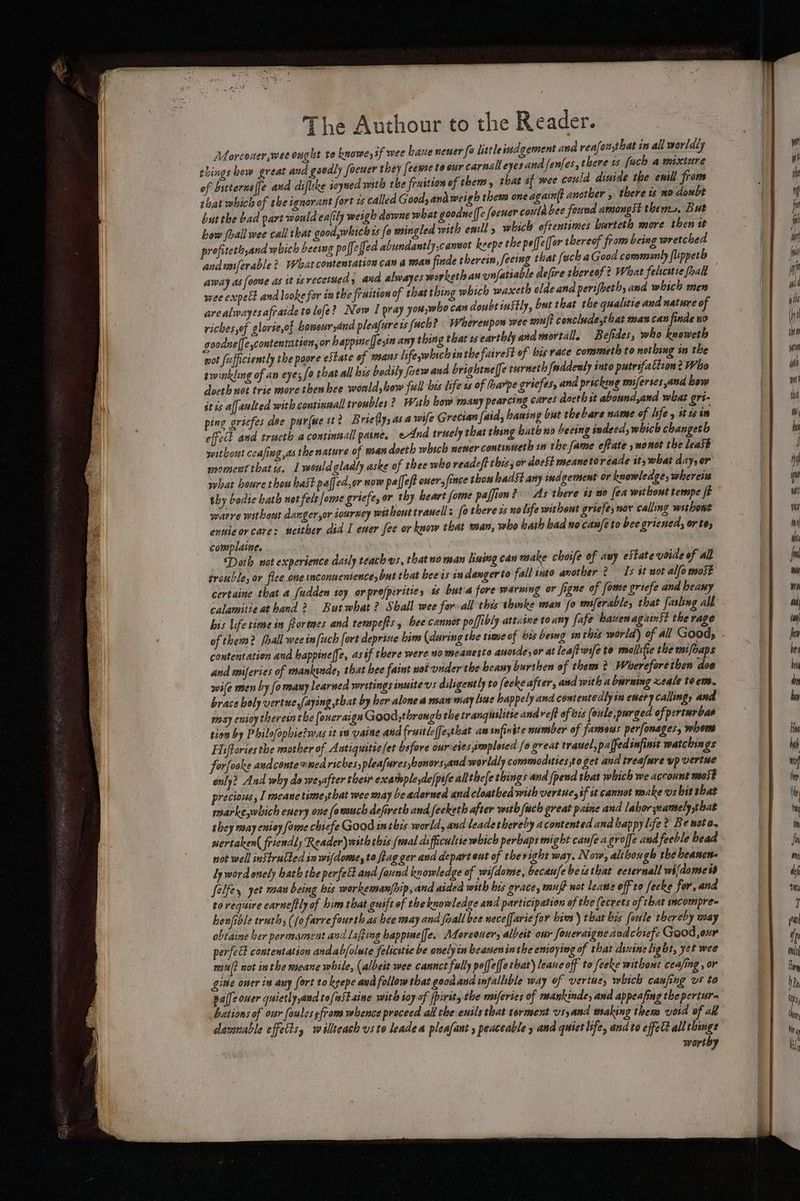 The Authour to the Reader.
Moreouer, wee ought to knowe, if wee haue neuer so little iudgement and reason, that in all worldly
things how great and goodly soeuer they seeme to our carnall eyes and senses, there is such a mixture
of bitternesse and dislike ioyned with the fruition of them, that if wee could diuide the euill from
that which of the ignorant sort is called Good, and weigh them one against another, there is no doubt
but the bad part would easily weigh downe what goodnesse soeuer could bee found amongst them. But
how shall wee call that good, which is so mingled with euill, which oftentimes hurteth more then it
profiteth, and which beeing possessed abundantly, cannot keepe the possessor thereof from being wretched
and miserable? What contentation can a man finde therein, seeing that such a Good commonly slippeth
away as soone as it is receiued, and alwayes worketh an vnsatiable desire thereof? What felicitie shall
wee expect and looke for in the fruition of that thing which waxeth olde and perisheth, and which men
are alwayes afraide to lose? Now I pray you, who can doubt iustly, but that the qualitie and nature of
riches, of glorie, of honour, and pleasure is such? Wherevpon wee must conclude, that man can finde no
goodnesse, contentation, or happinesse, in any thing that is earthly and mortall. Besides, who knoweth
not sufficiently the poore estate of mans life, which in the fairest of his race commeth to nothing in the
twinkling of an eye; so that all his bodily shew and brightnesse turneth suddenly into putrifaction? Who
doeth not trie more then hee would, how full his life is of sharpe griefes, and pricking miseries, and how
it is assaulted with continuall troubles? With how many pearcing cares doeth it abound, and what gri-
ping griefes doe pursue it? Briefly, as a wise Grecian said, hauing but the bare name of life, it is in
effect and trueth a continuall paine. And truely that thing hath no beeing indeed, which changeth
without ceasing, as the nature of man doeth which neuer continueth in the same estate, no not the least
moment that is. I would gladly aske of thee who readest this, or doest meane to reade it, what day, or
what houre thou hast passed, or now passest ouer, since thou hadst any iudgement or knowledge, wherein
thy bodie hath not felt some griefe, or thy heart some passion? As there is no sea without tempest
warre without danger, or iourney without trauell: so there is no life without griefe, nor calling without
enuie or care: neither did I euer see or know that man, who hath had no cause to bee grieued, or to,
complaine.
Doth not experience daily teach vs, that no man liuing can make choise of any estate voide of all
trouble, or flee one inconuenience, but that hee is in danger to fall into another? Is it not also most
certaine that a sudden ioy or prosperitie, is but a fore warning or signe of some griefe and heauy
calamitie at hand? But what? Shall wee for all this thinke man so miserable, that sailing all
his life time in stormes and tempests, hee cannot possibly attaine to any safe hauen against the rage
of them? shall wee in such sort depriue him (during the time of his being in this world) of all Good,
contentation and happinesse, as if there were no meanes to auoide, or at least wise to mollifie the mishaps
and miseries of mankinde, that hee faint not vnder the heauy burthen of them? Wherefore then doe
wise men by so many learned writings inuite vs diligently to seeke after, and with a burning zeale to em-
brace holy vertue, saying, that by her alone a man may liue happely and contentedly in euery calling, and
may enioy therein the soueraign Good, through the tranquilitie and rest of his soule, purged of perturba-
tion by Philosophie? was it in vaine and fruitlesse, that an infinite number of famous personages, whom
Histories the mother of Antiquitie set before our eies, imploied so great trauel, passed infinit watchings
forsooke and contemned riches, pleasures, honors, and worldly commodities, to get and treasure vp vertue
only? And why do we, after their example, despise all these things and spend that which we account most
precious, I meane time, that wee may be adorned and cloathed with vertue, if it cannot make vs hit that
marke, which euery one so much desireth and seeketh after with such great paine and labor, namely, that
they may enioy some chiefe Good in this world, and leade thereby a contented and happy life? Be not o-
uertaken (friendly Reader) with this smal difficultie which perhaps might cause a grosse and feeble head
not well instructed in wisdome, to stagger and depart out of the right way. Now, although the heauen-
ly word onely hath the perfect and sound knowledge of wisdome, because he is that eeternall wisdome it
selfe, yet man being his workemanship, and aided with his grace, must not leaue off to seeke for, and
to require earnestly of him that guift of the knowledge and participation of the secrets of that incompre-
hensible truth, (so farre fourth as hee may and shall bee necessarie for him) that his soule thereby may
obtaine her permanent and lasting happinesse. Moreouer, albeit our soueraigne and chiefe Good, our
perfect contentation and absolute felicitie be onely in heauen in the enioying of that diuine light, yet wee
must not in the meane while, (albeit wee cannot fully possesse that) leaue off to seeke without ceasing, or
giue ouer in any sort to keepe and follow that good and infallible way of vertue, which causing vs to
passe ouer quietly, and to sustaine with ioy of spirit, the miseries of mankinde, and appeasing the pertur-
bations of our soules, from whence proceed all the euils that torment vs, and making them void of all
damnable effects, will teach vs to leade a pleasant, peaceable, and quiet life, and to effect all things
worthy